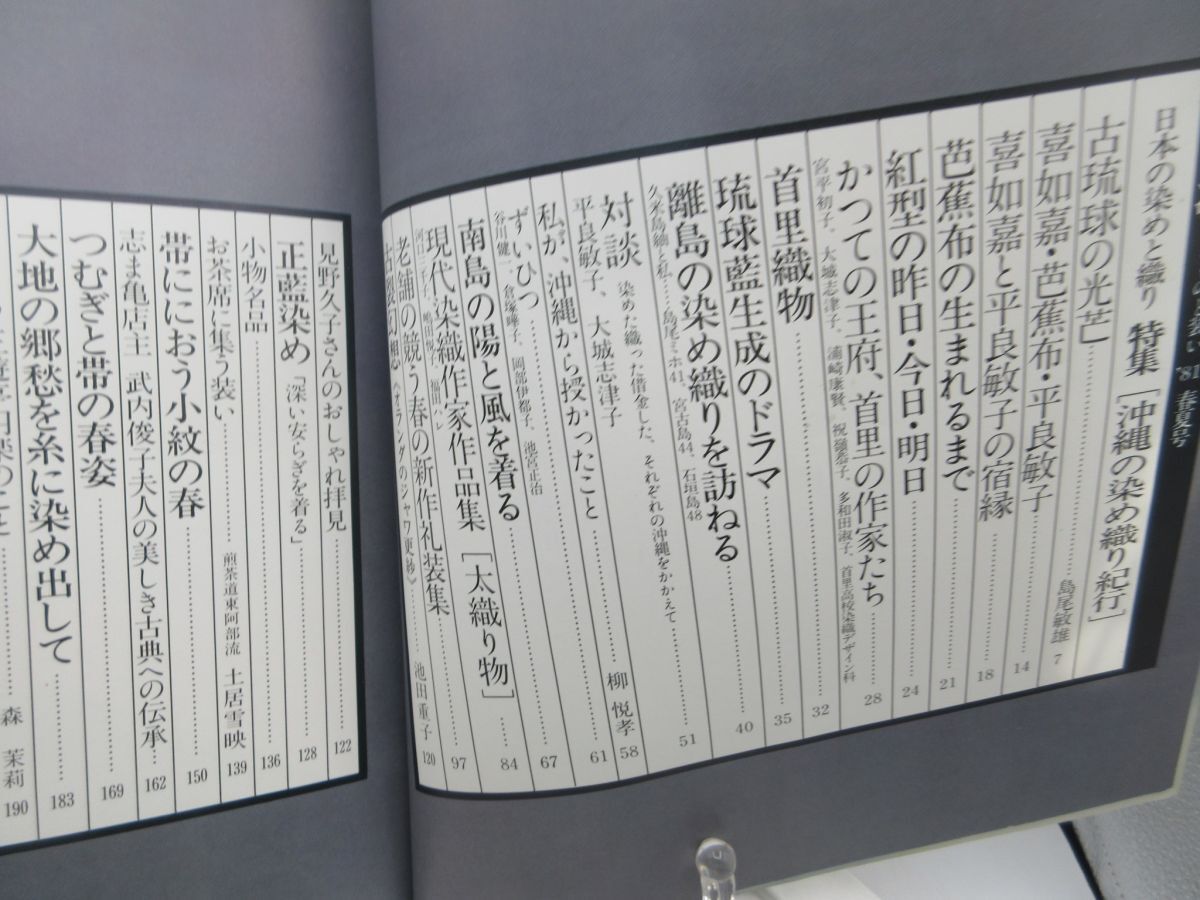 '81 春夏号
日本の染めと織り 特集[沖縄の染め織り紀行]
古琉球の光芒 島尾敏雄 7
喜如嘉・芭蕉布・平良敏子 14
喜如嘉と平良敏子の宿縁 18
芭蕉布の生まれるまで 21
紅型の昨日・今日・明日 24
かつての王府、首里の作家たち 28
宮平初子、大城志津子、浦崎康賢、祝嶺恭子、多和田淑子、首里高校染織デザイン科 32
首里織物 35
琉球藍生成のドラマ 40
離島の染め織りを訪ねる
久米島紬と私 島尾ミホ 41、宮古島44、石垣島48 51
対談 染めた織った借金した、それぞれの沖縄をかかえて 柳 悦孝 58
平良敏子、大城志津子 61
私が、沖縄から授かったこと 67
ずいひつ
谷川健一、倉塚曄子、岡部伊都子、池宮正治
南島の陽と風を着る 84
現代染織作家作品集[太織り物] 97
老舗の競う春の新作礼装集
古裂幻想 池田重子 120
見野久子さんのおしゃれ拝見 122
正藍染め「深い安らぎを着る」 128
小物名品 136
お茶席に集う装い 煎茶道東阿部流 土居雪映 139
帯ににおう小紋の春 150
志ま亀店主 武内俊子夫人の美しき古典への伝承 162
つむぎと帯の春姿 169
大地の郷愁を糸に染め出して 183
森 茉莉 190